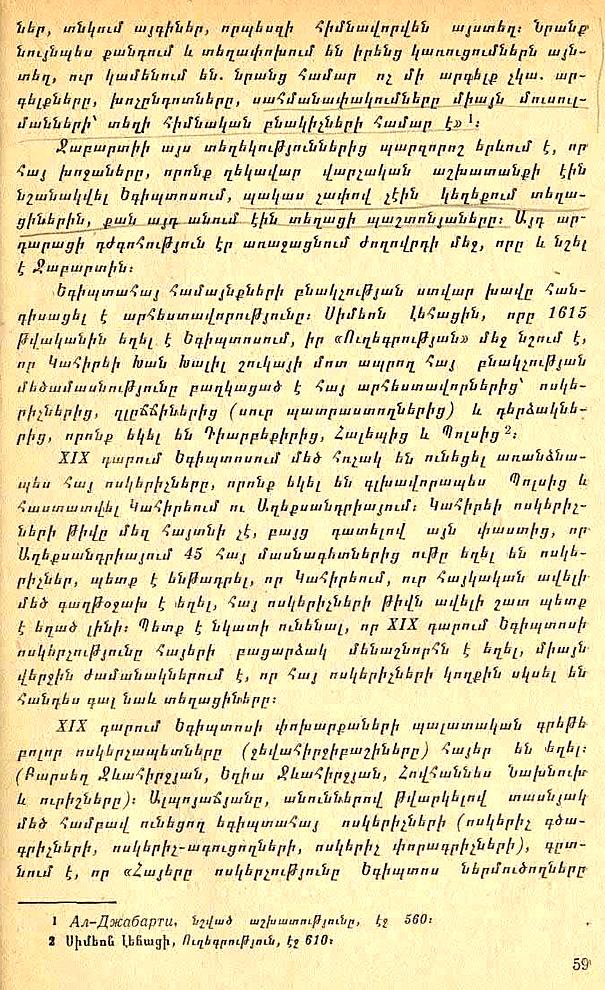 ներ, տնկում այգիներ, որպեսզի հիմնավորվեն այստեղ։ Նրանք
նույնպես քանդում և տեղափոխում են իրենց կառուցումներն այն-
տեղ, ուր կամենում են. նրանց համար ոչ մի արգելք չկա. ար-
գելքները, խոչընդոտները, սահմանափակումները միայն մուսուլ-
մանների՝ տեղի հիմնական բնակիչների համար է» 1։
Ջաբարտիի այս տեղեկություններից պարզորոշ երևում է, որ
հայ խոջաները, որոնք ղեկավար վարչական աշխատանքի էին
նշանակվել Եգիպտոսում, պակաս չափով չէին կեղեքում տեղա-
ցիներին, քան այդ անում էին տեղացի պաշտոնյաները։ Այդ ար-
դարացի դժգոհություն էր առաջացնում ժողովրդի մեջ, որը և նշել
է Ջաբարտին։
Եգիպտահայ համայնքների բնակչության ստվար խավը հան-
դիսացել է արհեստավորությունը։ Սիմեոն Լեհացին, որը 1615
թվականին եղել է Եգիպտոսում, իր «Ուղեգրության» մեջ նշում է,
որ Կահիրեի Խան Խալիլ շուկայի մոտ ապրող հայ բնակչության
մեծամասնությունը բաղկացած է հայ արհեստավորներից՝ ոսկե-
րիչներից, ղլըճճիներից (սուր պատրաստողներից) և դերձակնե-
րից, որոնք եկել են Դիարբեքիրից, Հալեպից և Պոլսից 2։
XIX դարում Եգիպտոսում մեծ հռչակ են ունեցել առանձնա-
պես հայ ոսկերիչները, որոնք եկել են գլխավորապես Պոլսից և
հաստատվել Կահիրեում ու Ալեքսանդրիայում։ Կահիրեի ոսկերիչ-
ների թիվը մեզ հայտնի չէ, բայց դատելով այն փաստից, որ
Ալեքսանդրիայում 45 հայ մասնագետներից ութը եղել են ոսկե-
րիչներ, պետք է ենթադրել, որ Կահիրեում, ուր հայկական ավելի
մեծ գաղթօջախ է եղել, հայ ոսկերիչների թիվն ավելի շատ պետք
է եղած լինի։ Պետք է նկատի ունենալ, որ XIX դարում Եգիպտոսի
ոսկերչությունը հայերի բացարձակ մենաշնորհն է եղել, միայն
վերջին ժամանակներում է, որ հայ ոսկերիչների կողքին սկսել են
հանդես գալ նաև տեղացիները։
XIX դարում Եգիպտոսի փոխարքաների պալատական գրեթե
բոլոր ոսկերչապետները (ջեվահիրջիբաշիները) հայեր են եղել։
(Բարսեղ Ջևահիրջյան, Եղիա Ջևահիրջյան, Հովհաննես Նախնուխ
և ուրիշները)։ Ալպոյաճյանը, անուններով թվարկելով տասնյակ
մեծ համբավ ունեցող եգիպտահայ ոսկերիչների (ոսկերիչ գծա-
գրիչների, ոսկերիչ-ագուցողների, ոսկերիչ փորագրիչների), գըտ-
նում է, որ «Հայերը ոսկերչությունը Եգիպտոս ներմուծողները
1 Ал-Джабарти, նշված աշխատությունը, էջ 560։
2 Սիմեոն Լեհացի, Ուղեգրություն, էջ 610։
59